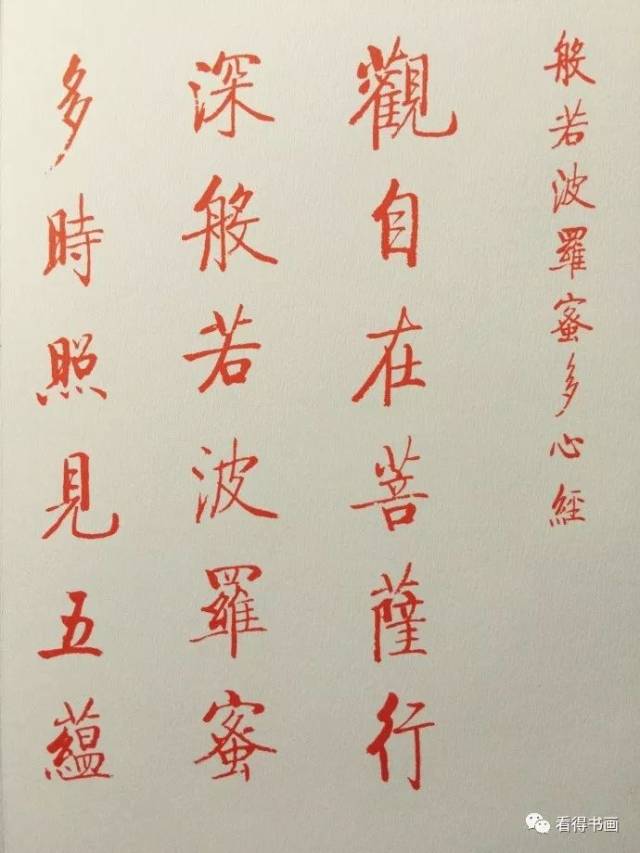 般若波羅蜜多心經
觀自在菩薩行
深般若波羅蜜
多時照見五蘊
看得书画